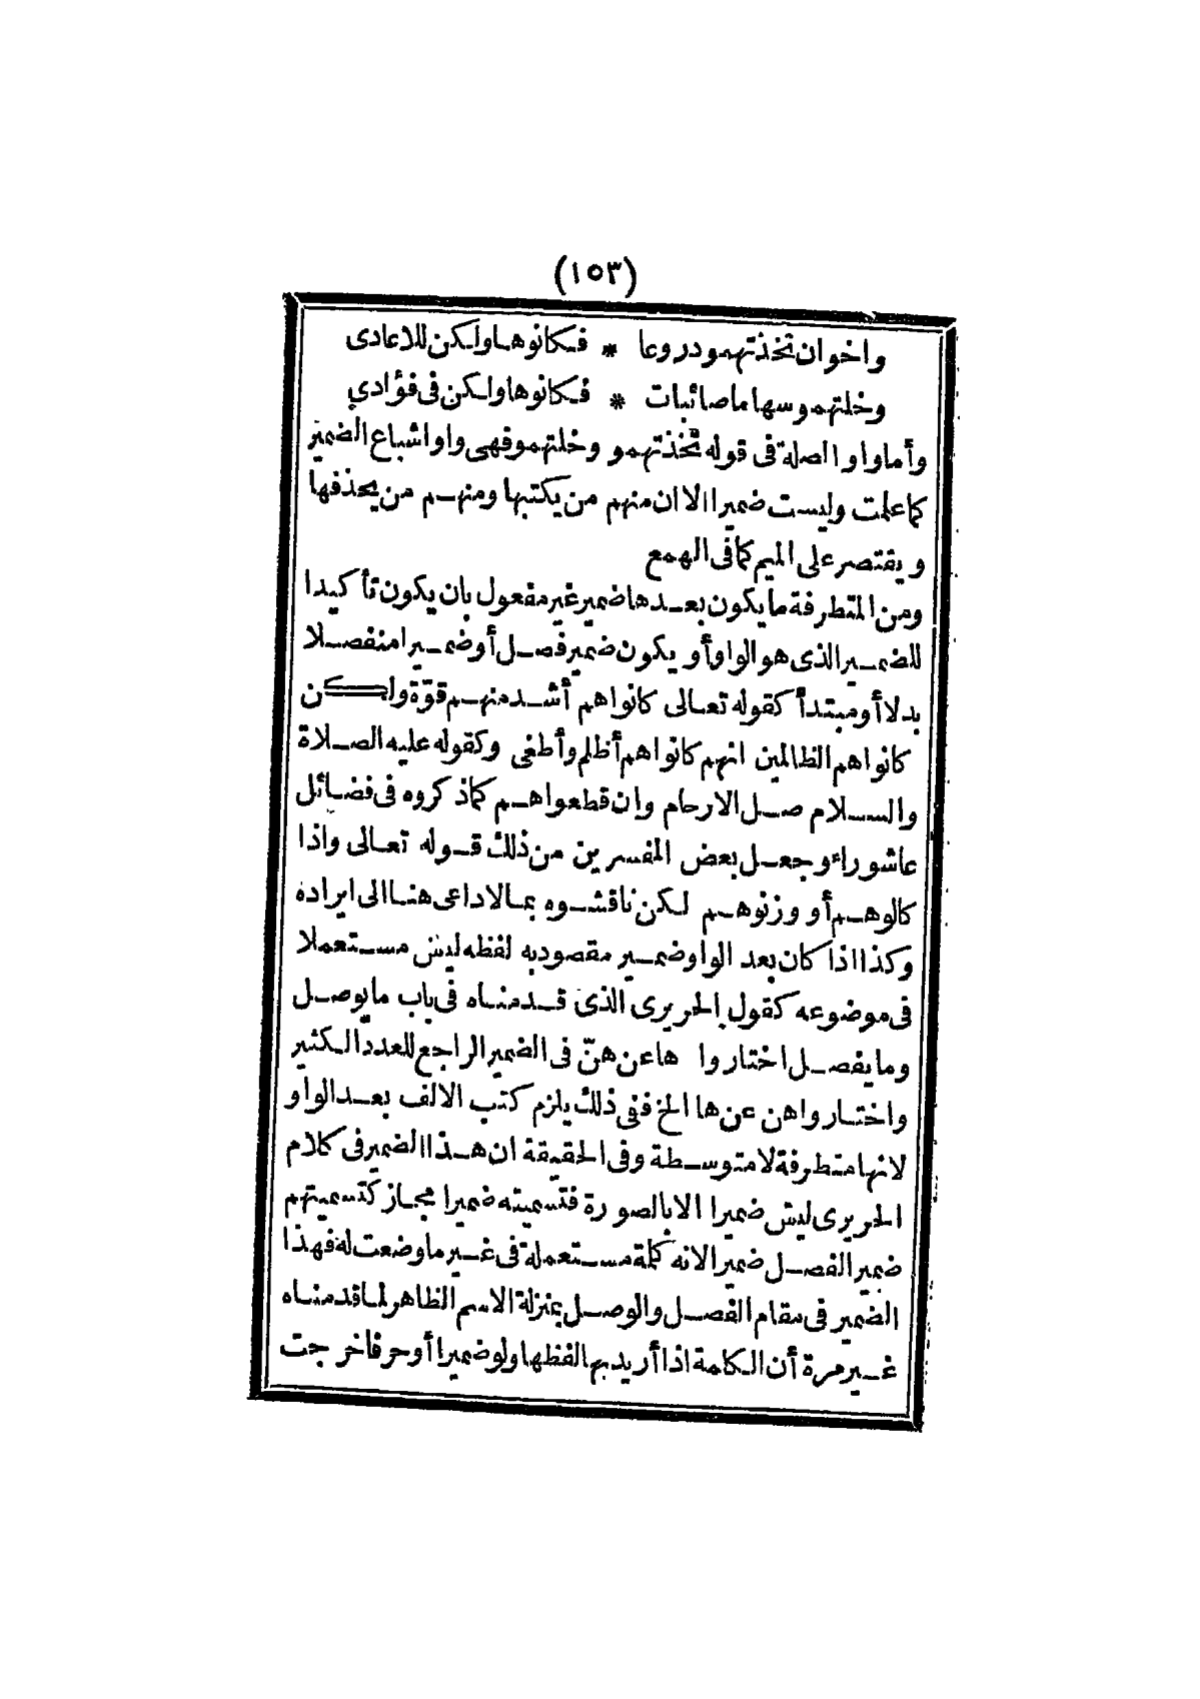 (١٥٣)
واخوان تخذتهمو دروعا * فكانوها ولكن للاعادى
وخلتهمو سهاما صائبات * فكانوها ولكن فى فؤادى
وأما واو الصلة فى قوله تخذتهمو وخلتهمو فهى واو اشباع الضمير
كما علمت وليست ضميرا الا ان منهم من يكتبها ومنهم من يحذفها
ويقتصر على الميم كما فى الهمع
ومن المتطرفة ما يكون بعدها ضمير غير مفعول بان يكون تأكيدا
للضمير الذى هو الواو أو يكون ضمير فصل أو ضميرا منفصلا
بدلا أو مبتدأ كقوله تعالى كانوا هم أشد منهم قوّة ولكن
كانوا هم الظالمين انهم كانوا هم أظلم وأطغى وكقوله عليه الصلاة
والسلام صل الارحام وان قطعوا هم كما ذكروه فى فضائل
عاشوراء وجعل بعض المفسرين من ذلك قوله تعالى واذا
كالوهم أو وزنوهم لكن ناقشوه بما لا داعى هنا الى ايراده
وكذا اذا كان بعد الواو ضمير مقصود به لفظه ليس مستعملا
فى موضوعه كقول الحريرى الذى قدمناه فى باب ما يوصل
وما يفصل اختاروا ها عن هنّ فى الضمير الراجع للعدد الكثير
واختاروا هن عن ها الخ ففى ذلك يلزم كتب الالف بعد الواو
لانها متطرفة لا متوسطة وفى الحقيقة ان هذا الضمير فى كلام
الحريرى ليس ضميرا الا بالصورة فتسميته ضميرا مجاز كتسميتهم
ضمير الفصل ضميرا لانه كلمة مستعملة فى غير ما وضعت له فهذا
الضمير فى مقام الفصل والوصل بمنزلة الاسم الظاهر لما قدمناه
غير مرة أن الكلمة اذا أريد بها لفظها ولو ضميرا أو حرفا خرجت